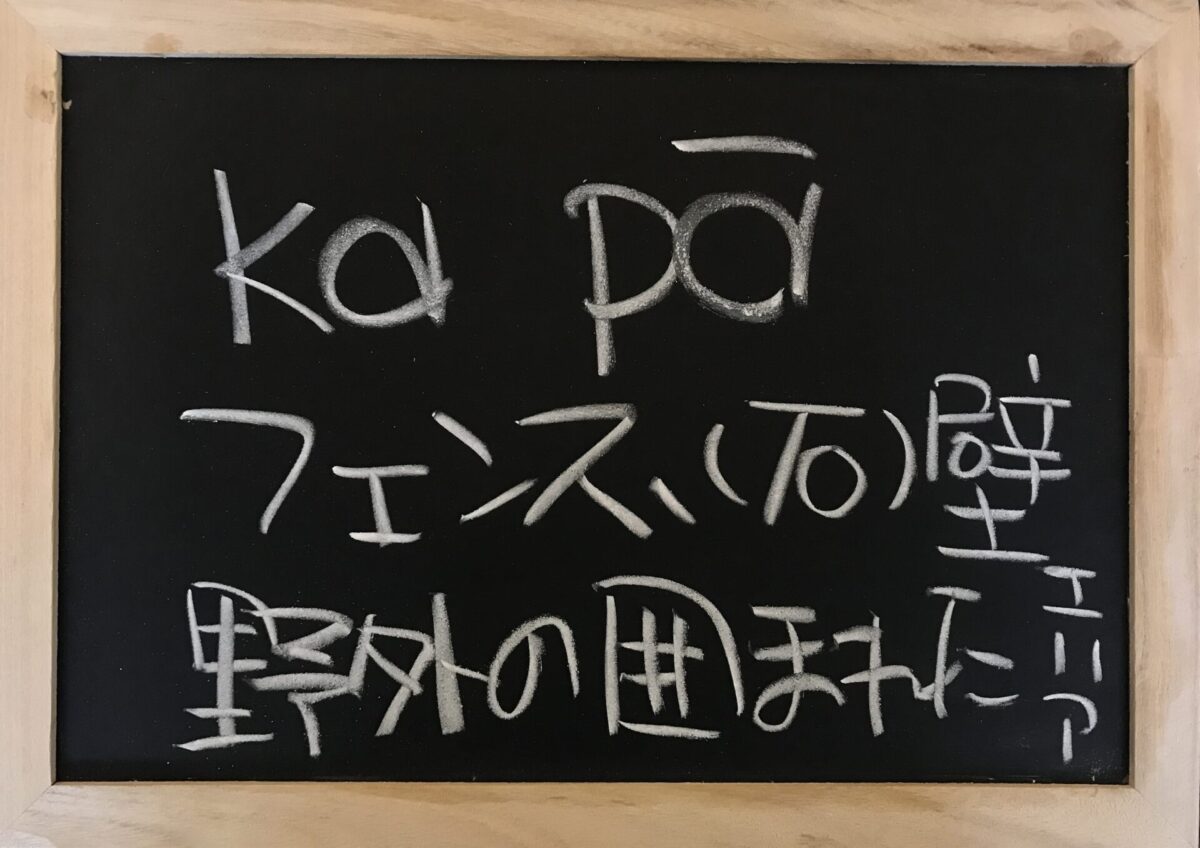 ka pā
フェンス、(石)壁
野外の囲まれたエリア